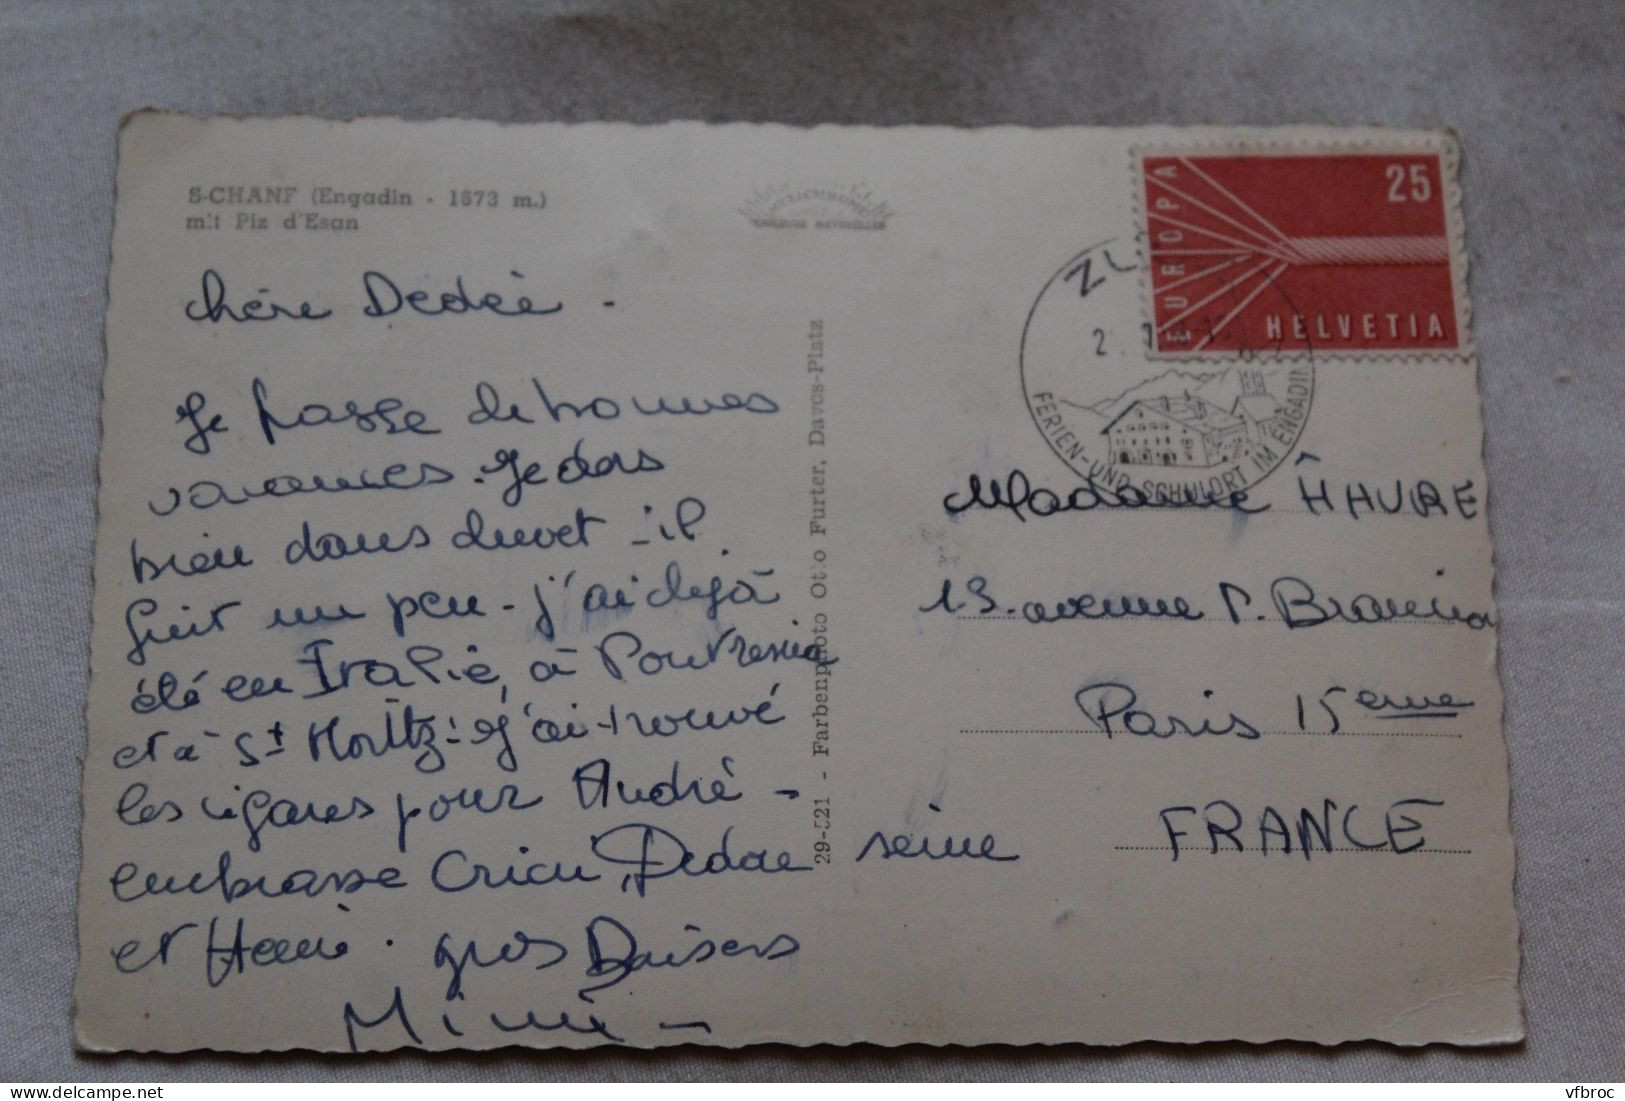 S-CHANF (Engadin - 1673 m.)
mit Piz d'Esan
chère Dedée -
Je passe de bonnes
vacances. Je dors
bien dans duvet - il
fait un peu - j'ai dejà
été en Italie, à Pontresina
et à St Moritz - j'ai trouvé
les cigares pour André -
embrasse Dedae
et Henri. gros Baisers
Mimi -
29-521 - Farbenphoto Otto Furter, Davos-Platz
EUROPA
25
HELVETIA
ZU
FERIEN- UND SCHULORT IM ENGADIN
Madame HAVRE
13. avenue P.
Paris 15 eme
seine FRANCE
vfbroc